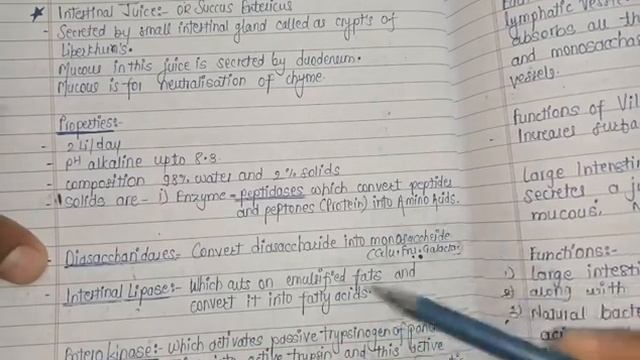 Intestinal Juice:- OR Succus Entericus
- Secreted by small intestinal gland called as crypt's of
Liberkhum's.
Mucous in this juice is secreted by duodenum.
Mucous is for neutralisation of chyme.
Properties:-
- 2 Li/day
- pH alkaline upto 8.3
- composition 98% water and 2% solids
- solids are - i) Enzyme - peptidases which convert peptides
and peptones (Protein) into Amino Acids.
- Diasaccharidases- Convert diasaccharide into monosaccheride
(Glu. Fru. Galactose
- Intestinal Lipase:- which acts on emulsified fats and
convert it into fatty acids.
Enterokinase:- which activates passive trypsinogen of
trypsin and this active
lymphatic
absorbs all
and monosaccha
vessels.
Functions of Vil
- Increases surfa
Large Intestin
secretes a j
mucous.
Functions:-
1) Large intesti
2) along with
3) Natural bact